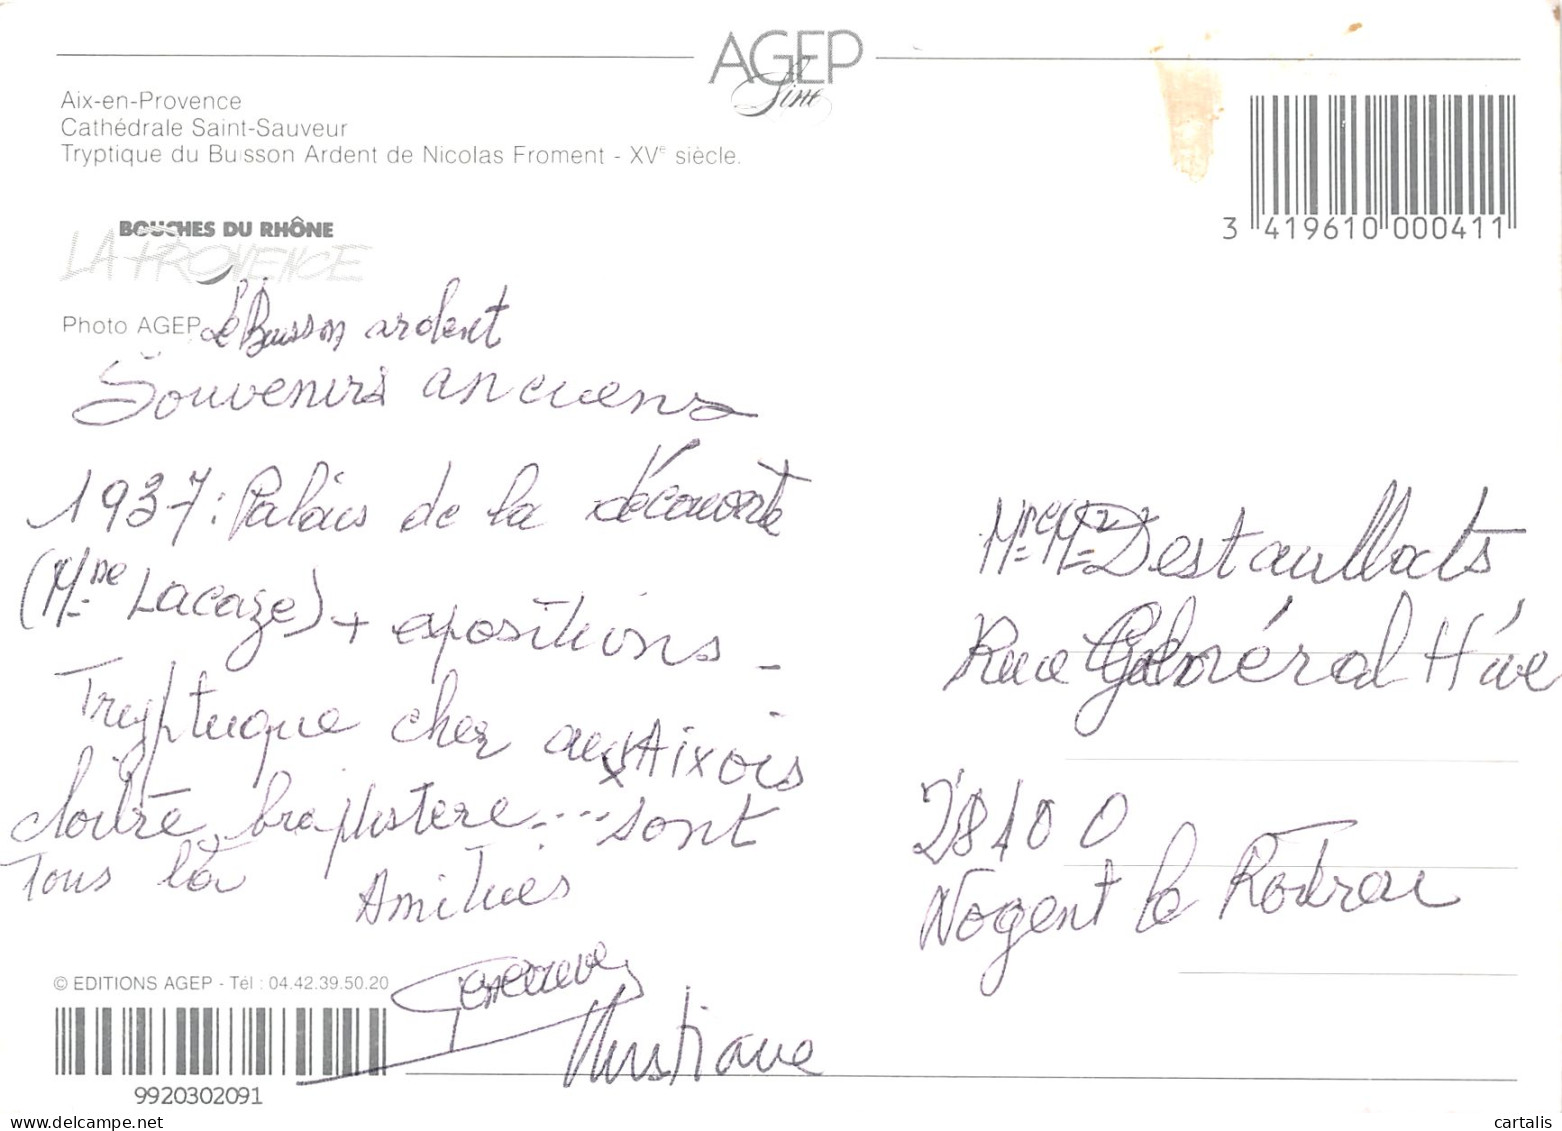 AGEP
Line
Aix-en-Provence
Cathédrale Saint-Sauveur
Tryptique du Buisson Ardent de Nicolas Froment - XVe siècle.
3 419610 000411
BOUCHES DU RHÔNE
LA PROVENCE
Photo AGEP
Le Buisson ardent
Souvenirs anciens
1937 : Palais de la découverte
(Mme Lacaze) + expositions -
Tryptique cher aux Aixois
cloître, baptistere.... sont
Tous là
Amitiés
Genevieve
Christiane
Mr et Mme Destaillats
Rue Général
28400
Nogent le Rotrou
© EDITIONS AGEP - Tél : 04.42.39.50.20
9920302091
cartalis